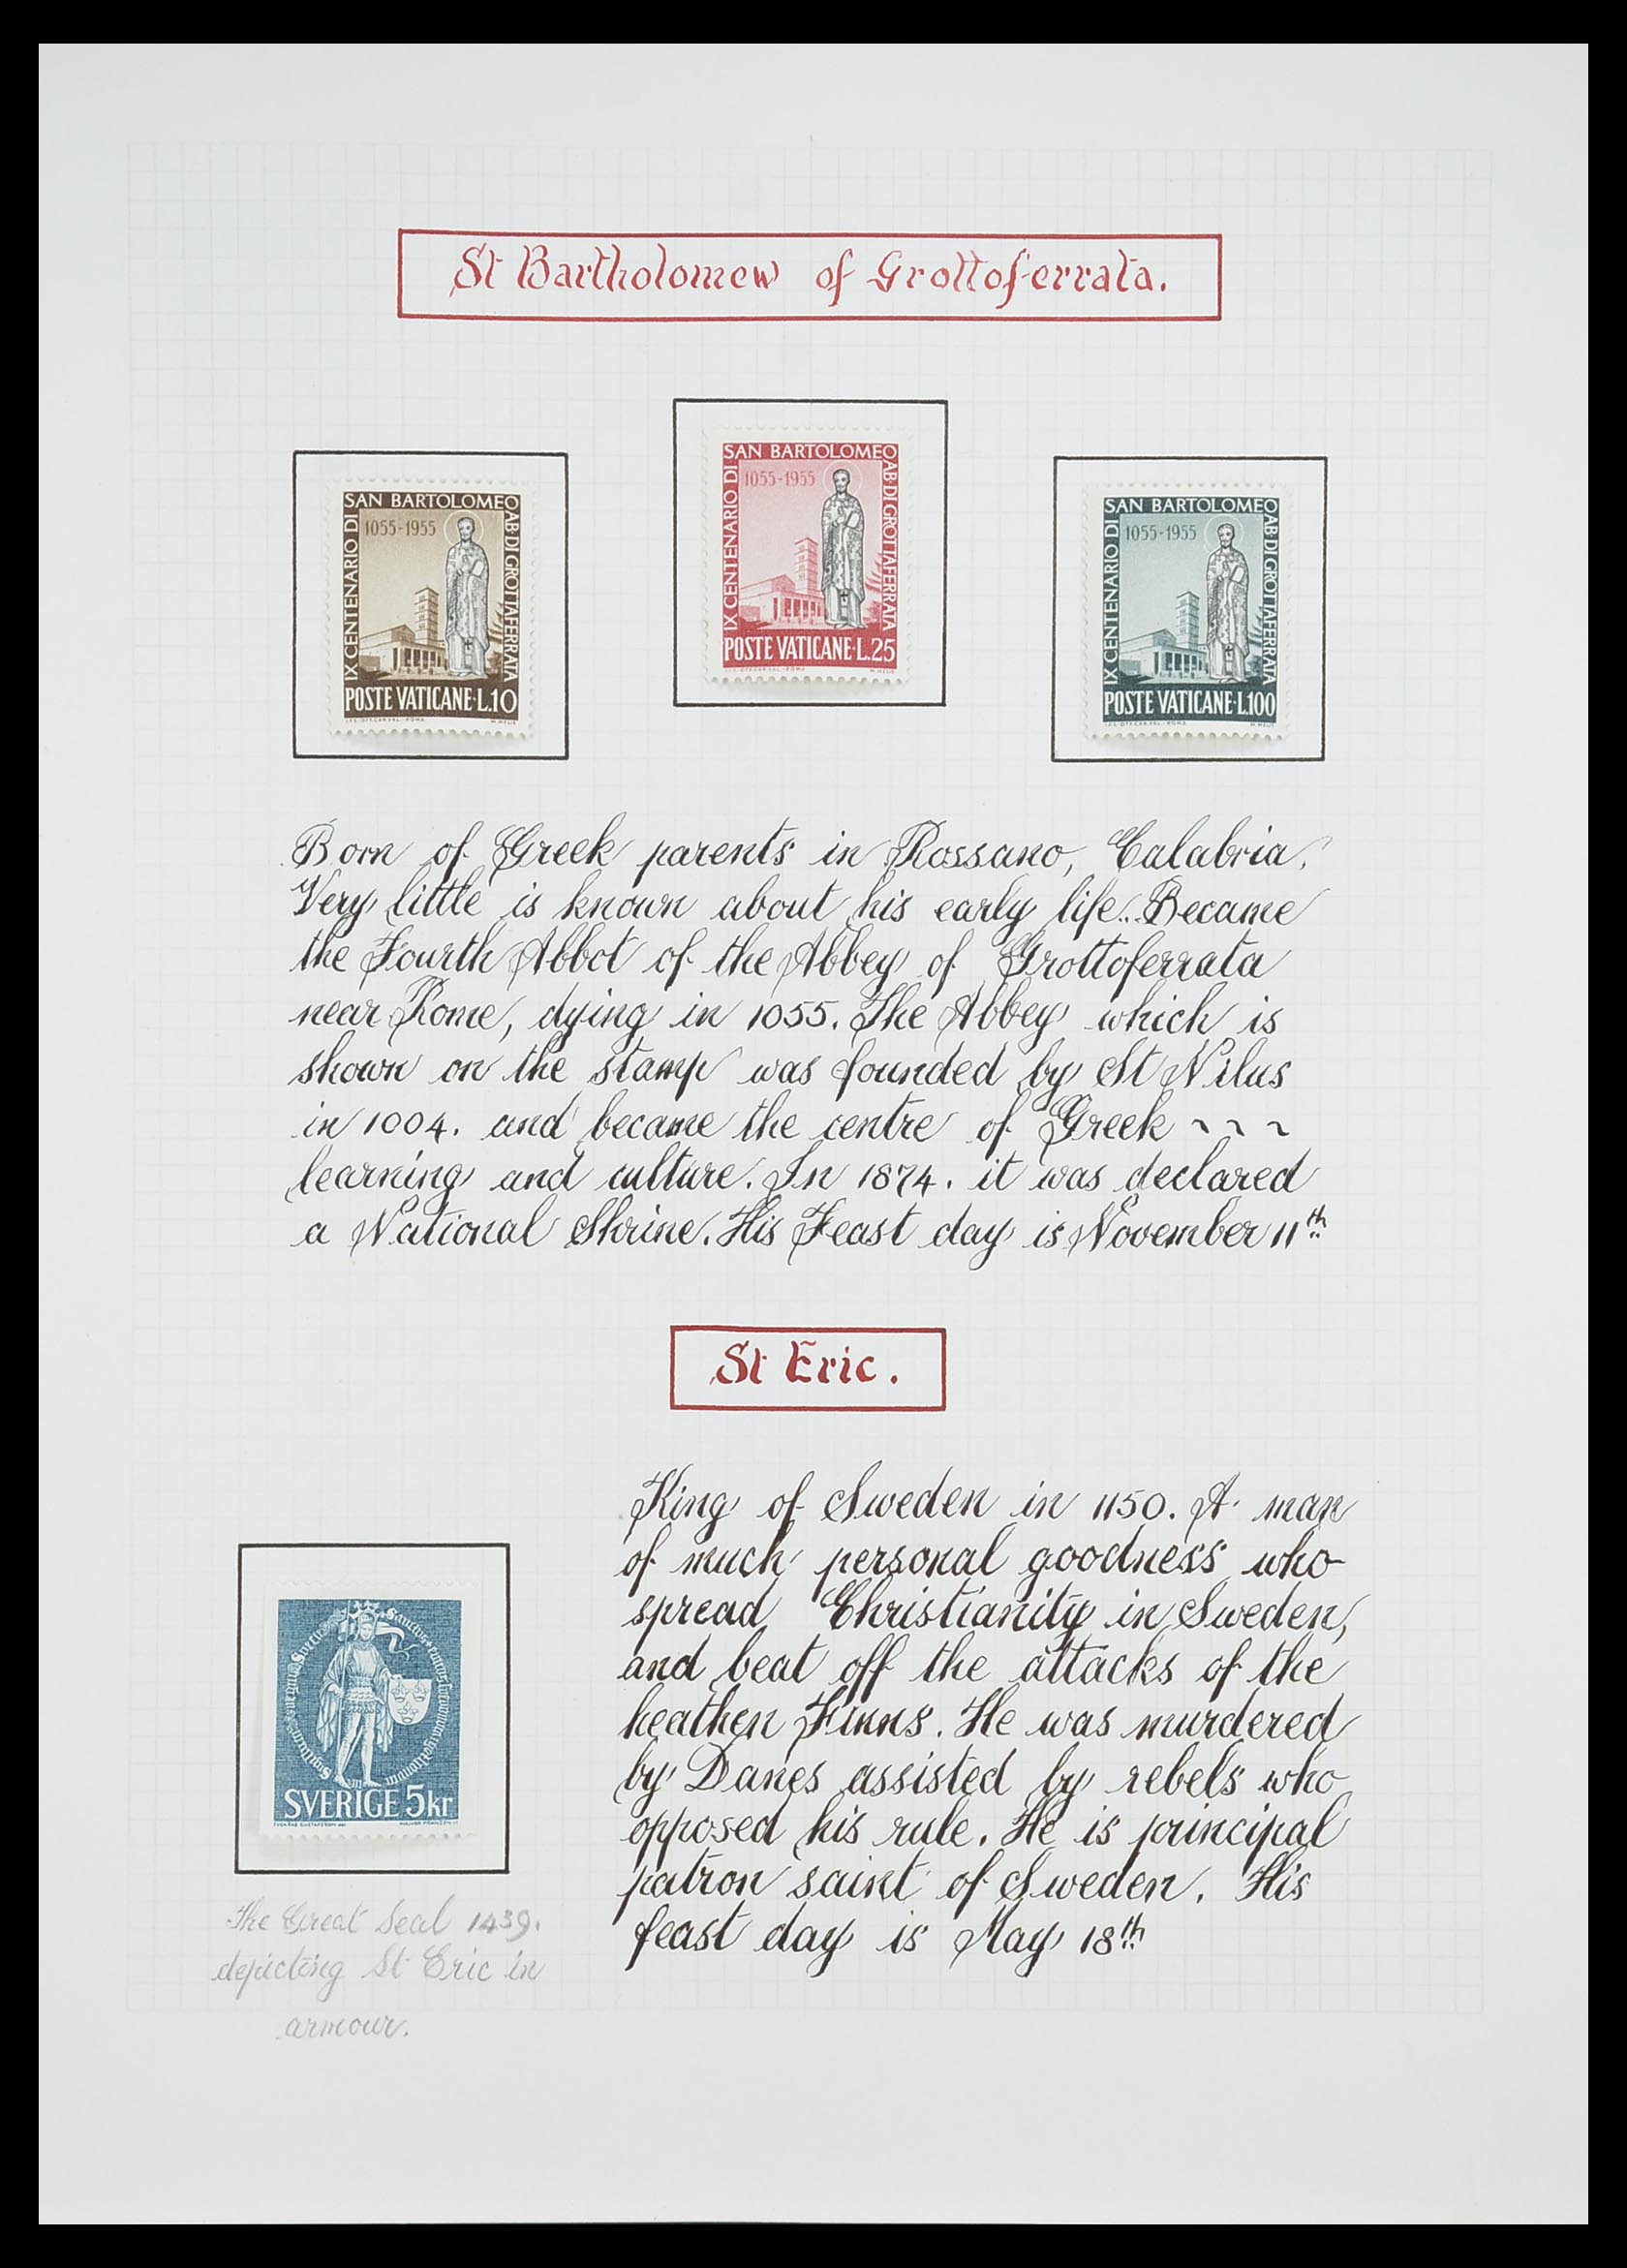 St Bartholomew of Grottoferrata.
IX CENTENARIO DI
SAN BARTOLOMEO
AB. DI GROTTAFERRATA
1055-1955
POSTE VATICANE·L.10
IST. POL. OFF. CAR. VAL. - ROMA
IX CENTENARIO DI
SAN BARTOLOMEO
AB. DI GROTTAFERRATA
1055-1955
POSTE VATICANE·L.25
IX CENTENARIO DI
SAN BARTOLOMEO
AB. DI GROTTAFERRATA
1055-1955
POSTE VATICANE·L.100
Born of Greek parents in Rossano, Calabria.
Very little is known about his early life. Became
the Fourth Abbot of the Abbey of Grottoferrata
near Rome, dying in 1055. The Abbey which is
shown on the stamp was founded by St Nilus
in 1004. and became the centre of Greek ~ ~ ~
learning and culture. In 1874. it was declared
a National Shrine. His Feast day is November 11th
St Eric.
SVERIGE 5kr
The Great Seal 1439.
depicting St Eric in
armour.
King of Sweden in 1150. A man
of much personal goodness who
spread Christianity in Sweden,
and beat off the attacks of the
heathen Finns. He was murdered
by Danes assisted by rebels who
opposed his rule. He is principal
patron saint of Sweden. His
feast day is May 18th